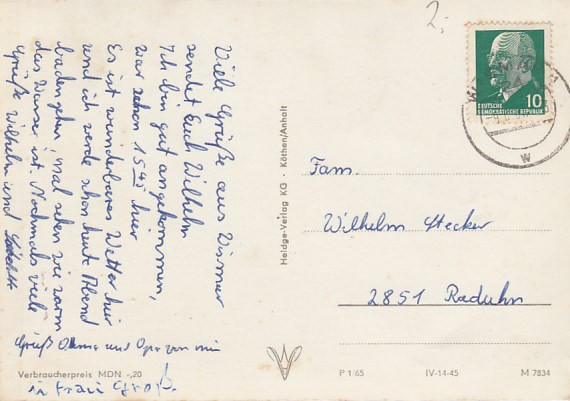 Viele Grüße aus Wismar
sendet Euch Wilhelm
Ich bin gut angekommen,
war schon 15 45 hier
Es ist wunderbares Wetter hier
und ich werde schon heute Abend
baden gehen, mal sehen wie warm
das Wasser ist. Nochmals viele
Grüße Wilhelm und
Grüß Oma und Opa von mir
Verbraucherpreis MDN -,20
Heldge-Verlag KG · Köthen/Anhalt
2,-
DEUTSCHE
DEMOKRATISCHE REPUBLIK
10
w
Fam.
Wilhelm Stecker
2851 Raduhn
P 1/65
IV-14-45
M 7834